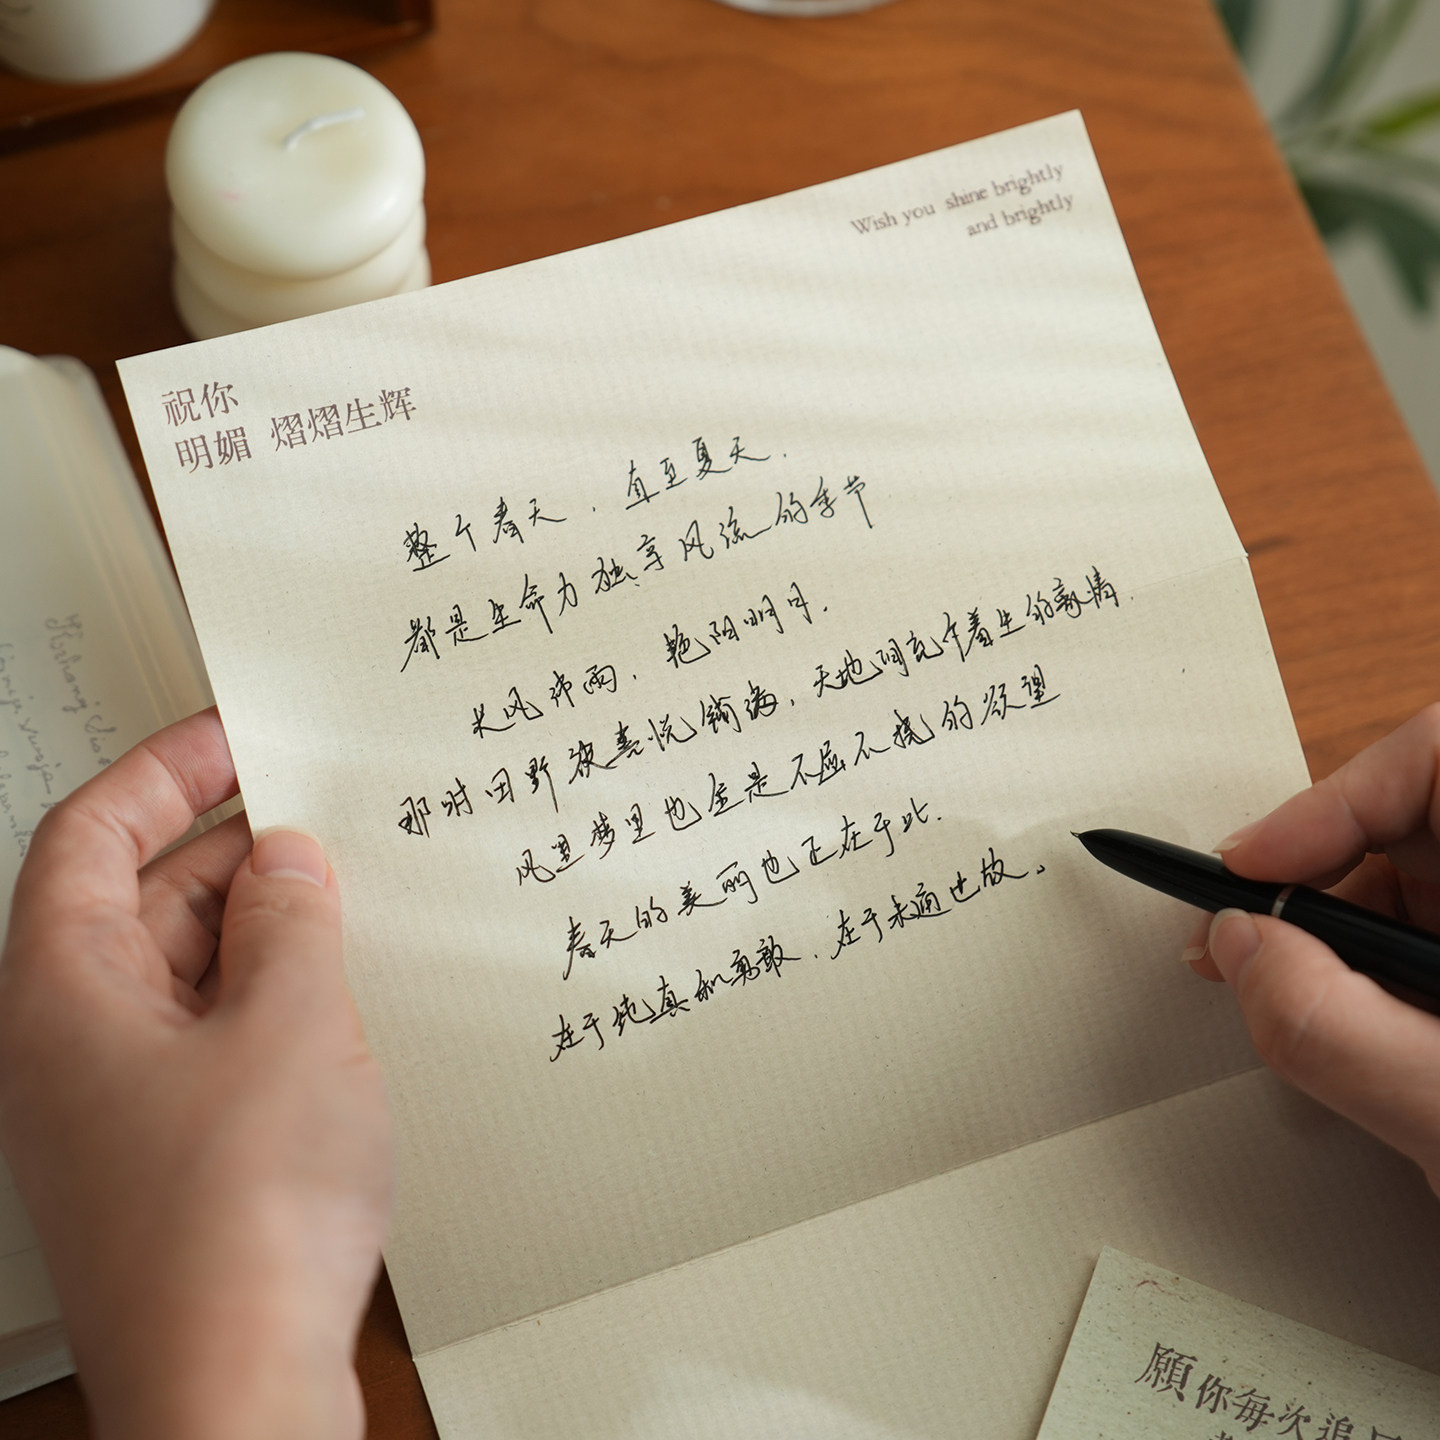 Wish you shine brightly
and brightly
祝你
明媚 熠熠生辉
整个春天，直至夏天，
都是生命力独享风流的季节
长风沛雨，艳阳明月，
那时田野被喜悦铺满，天地间充斥着生的豪情，
风里梦里也全是不屈不挠的欲望
春天的美丽也正在于此，
在于纯真和勇敢，在于未通世故。
願你每次追